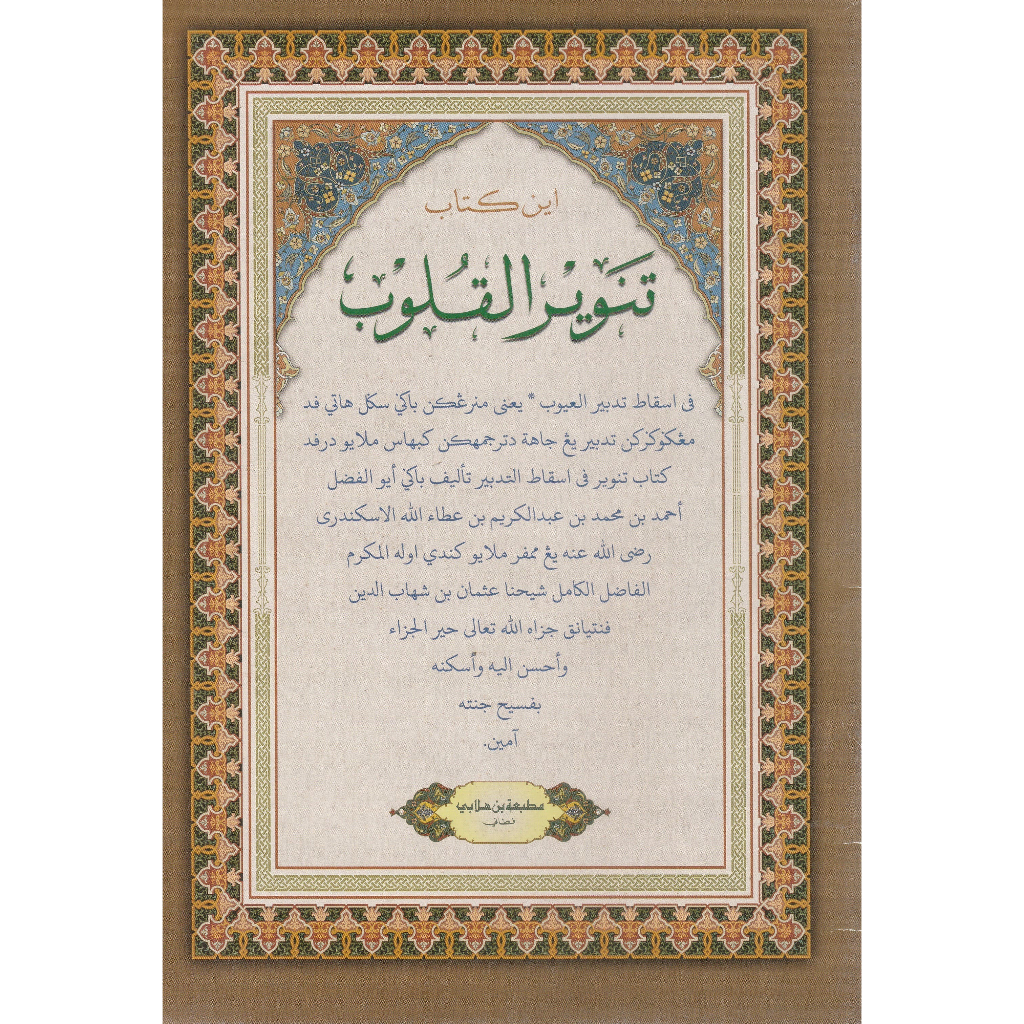 اين كتاب
تَنوِيْر القُلُوْب
فى اسقاط تدبير العيوب * يعنى منرڠكن باكي سكل هاتي فد
مڠكوكركن تدبير يڠ جاهة دترجمهكن كبهاس ملايو درفد
كتاب تنوير فى اسقاط التدبير تأليف باكي أبو الفضل
أحمد بن محمد بن عبدالكريم بن عطاء الله الاسكندرى
رضى الله عنه يڠ ممفر ملايو كندي اوله المكرم
الفاضل الكامل شيحنا عثمان بن شهاب الدين
فنتيانق جزاه الله تعالى حير الجزاء
وأحسن اليه وأسكنه
بفسيح جنته
آمين.
مطبعة بن هلابي
فطاني